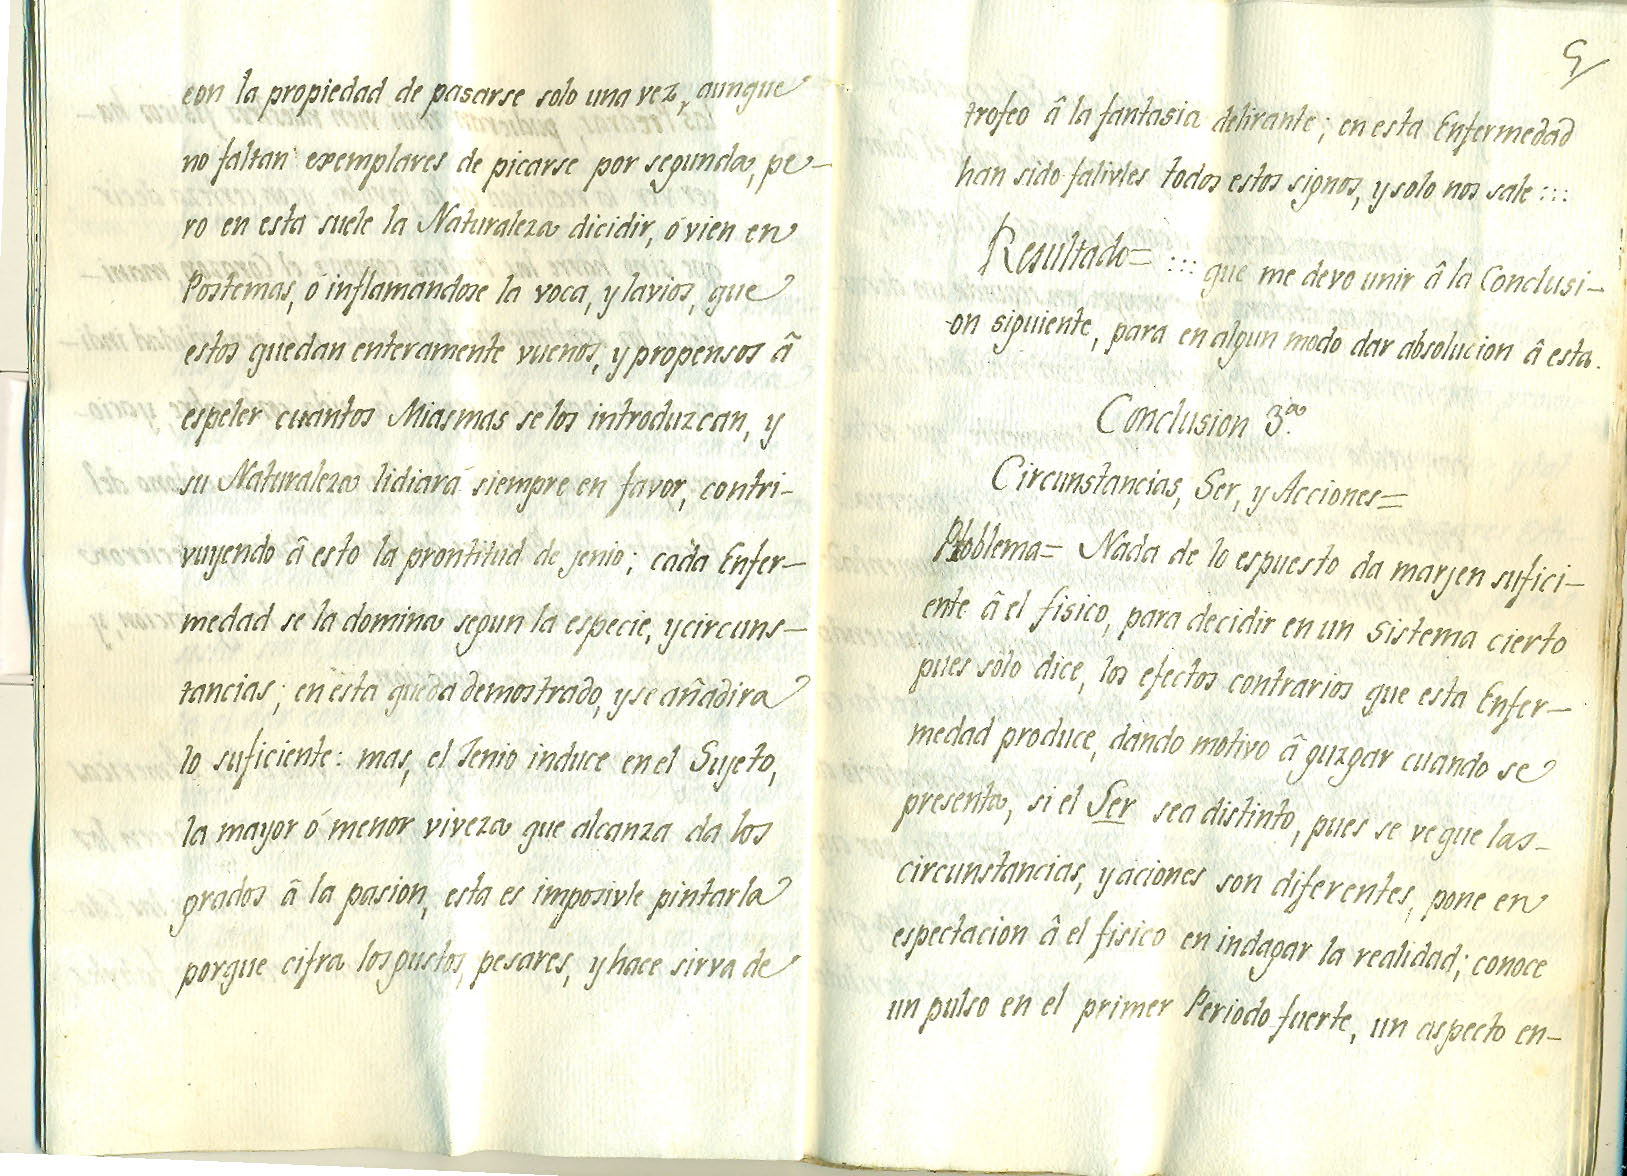 con la propiedad de pasarse solo una vez, aunque
no faltan exemplares de picarse por segunda, pe-
ro en esta suele la Naturaleza dicidir, ó vien en
Postemas, ó inflamandose la voca, y lavios, que
estos quedan enteramente vuenos, y propensos â
espeler cuantos Miasmas se los introduzcan, y
su Naturaleza lidiará siempre en favor, contri-
vuyendo â esto la prontitud de jenio; cada Enfer-
medad se la domina segun la especie, y circuns-
tancias; en esta queda demostrado, y se añadira
lo suficiente: mas, el Jenio induce en el Sujeto,
la mayor ó menor viveza que alcanza da los
grados â la pasion, esta es imposivle pintarla
porque cifra los gustos, pesares, y hace sirva de
5
trofeo â la fantasia delirante; en esta Enfermedad
han sido falivles todos estos signos, y solo nos sale :::
Resultado= ::: que me devo unir â la Conclusi-
on siguiente, para en algun modo dar absolucion â esta.
Conclusion 3.ª
Circunstancias, Ser, y Acciones=
Problema= Nada de lo espuesto da marjen sufici-
ente â el fisico, para decidir en un Sistema cierto
pues sólo dice, los efectos contrarios que esta Enfer-
medad produce, dando motivo â guzgar cuando se
presenta, si el Ser sea distinto, pues se ve que las
circunstancias, y aciones son diferentes, pone en
espectacion â el fisico en indagar la realidad; conoce
un pulso en el primer Periodo fuerte, un aspecto en-